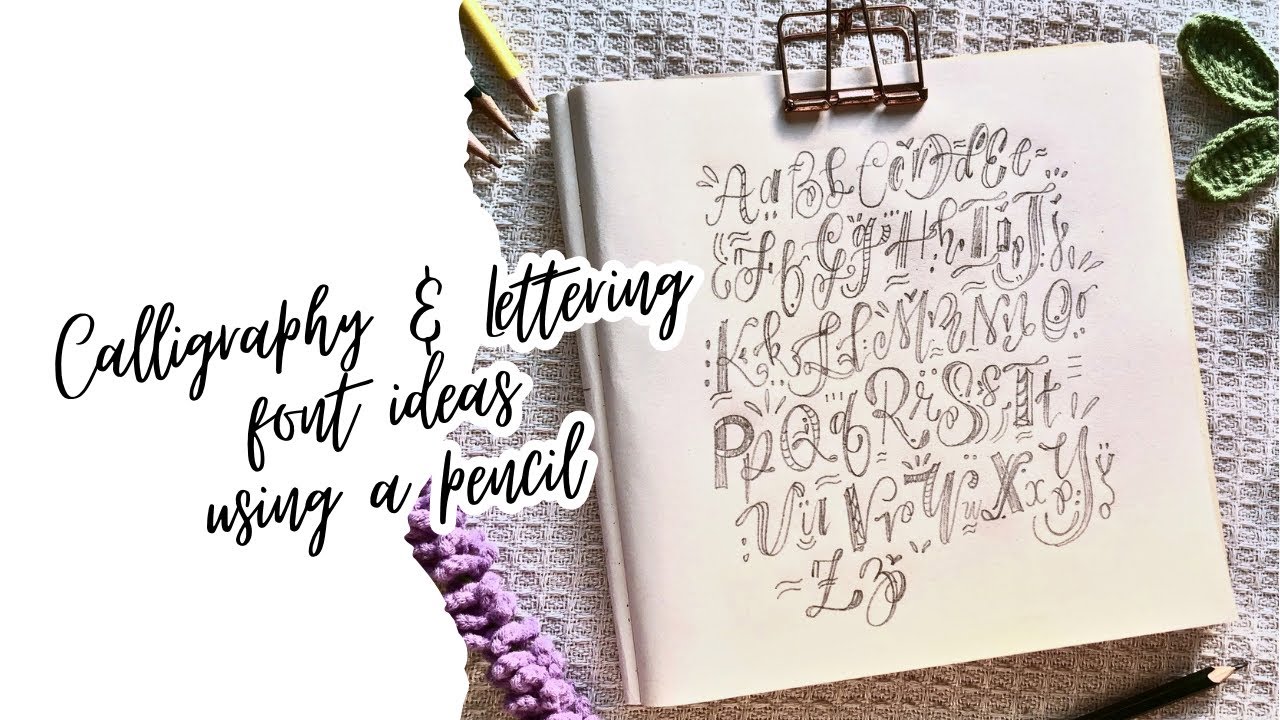 Calligraphy & lettering
font ideas
using a pencil
A a B b C c D d E e
F f G g H h I i J j
K k L l M m N n O o
P p Q q R r S s T t
U u V v W w X x Y y
Z z